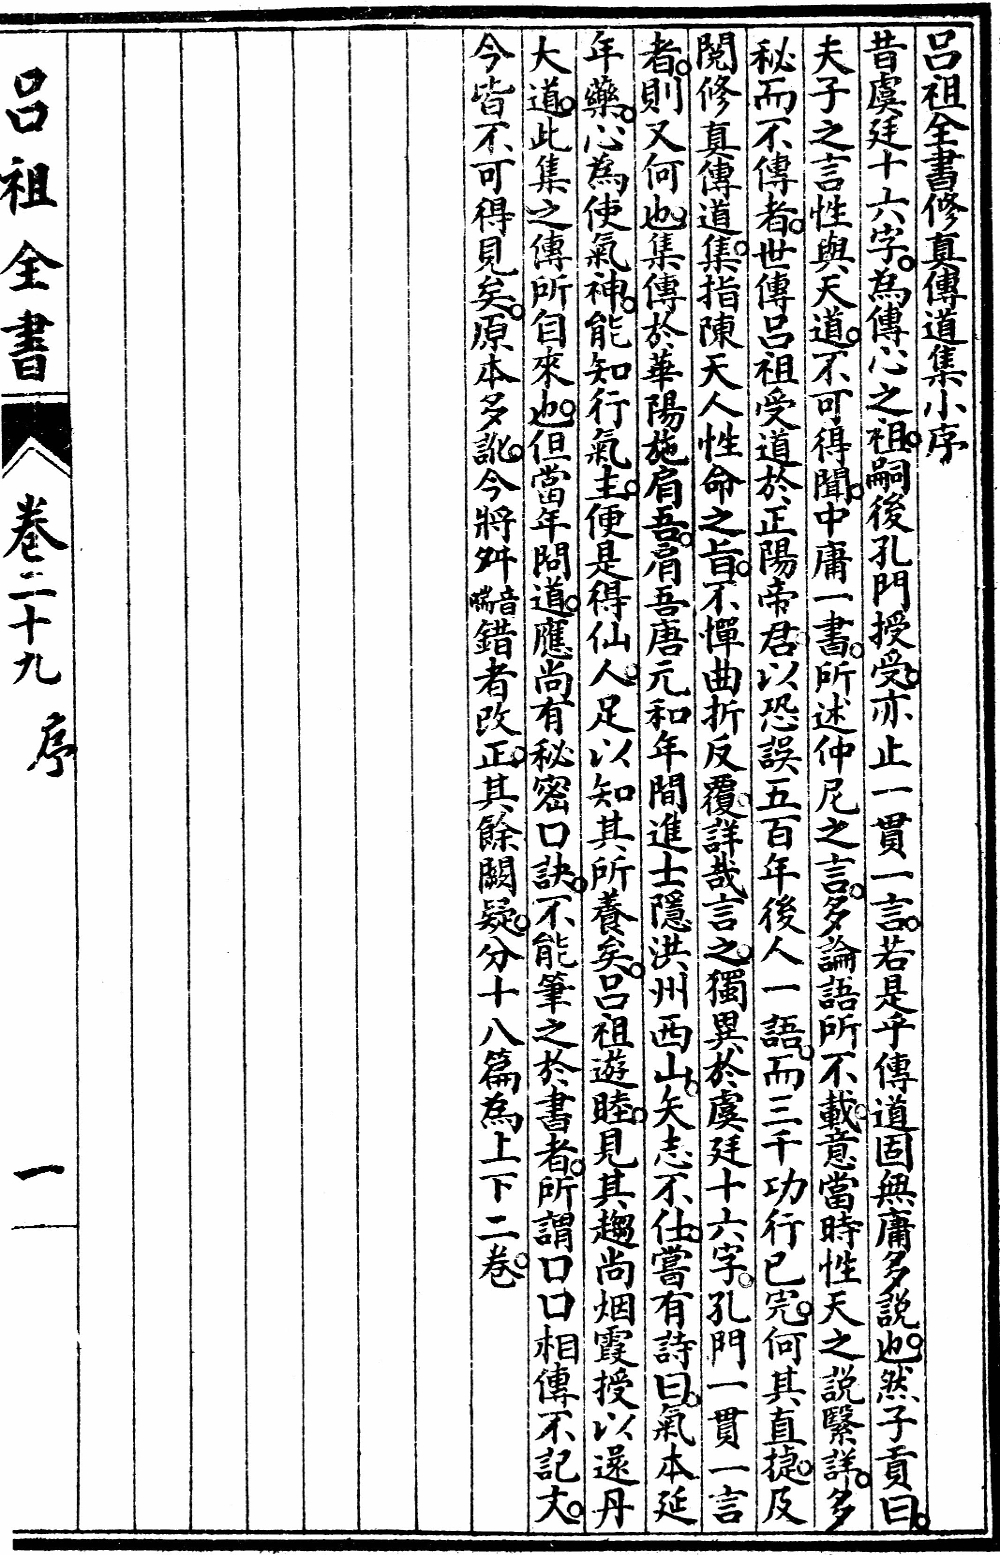 呂祖全書修真傳道集小序
昔虞廷十六字。為傳心之祖。嗣後孔門授受。亦止一貫一言。若是乎傳道固無庸多説也。然子貢曰。
夫子之言性與天道。不可得聞。中庸一書。所述仲尼之言。多論語所不載。意當時性天之説緊詳。多
秘而不傳者。世傳呂祖受道於正陽帝君。以恐誤五百年後人一語。而三千功行已完。何其直捷。及
閱修真傳道集。指陳天人性命之旨。不憚曲折反覆。詳哉言之。獨異於虞廷十六字。孔門一貫一言
者。則又何也。集傳於華陽施肩吾。肩吾唐元和年間進士隱洪州西山。矢志不仕。嘗有詩曰。氣本延
年藥。心為使氣神。能知行氣主。便是得仙人。足以知其所養矣。呂祖遊睦。見其趨尚烟霞授以還丹
大道。此集之傳所自來也。但當年問道。應尚有秘密口訣。不能筆之於書者。所謂口口相傳不記文。
今皆不可得見矣。原本多訛。今將舛音喘錯者改正。其餘闕疑。分十八篇為上下二卷。
呂祖全書 卷二十九 序 一